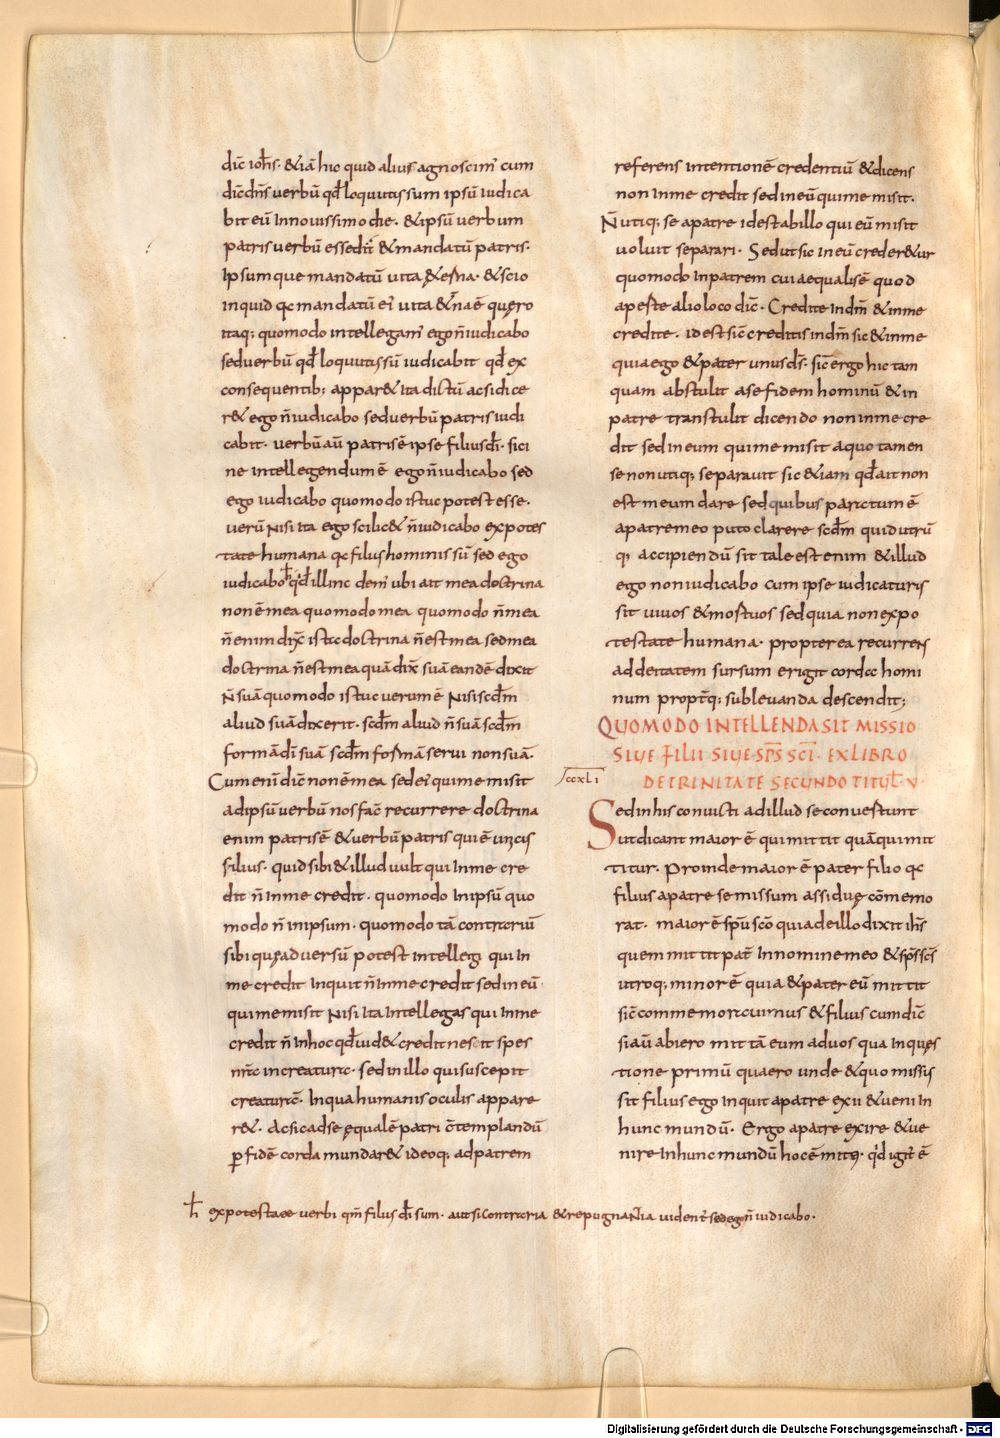 dic̄ ioh̄s· &iā hic quid alius agnoscim̄ cum
dic̄ dn̄s uerbū qđ loquutus sum ipsū iudica
bit eū Innouissimo die· &ipsū uerbum
patris uerbū esse dc̄t &mandatū patris·
Ipsumque mandatū uita &et̄na· &scio
inquid qc mandatū ei' uita &n̄a ē quęro
itaq; quomodo intellegam' ego n̄ iudicabo
sed uerbū qđ loquutus sū iudicabit qđ ex
consequentib; appar& ita dictū ac si dice
r& ego n̄ iudicabo sed uerbū patris iudi
cabit· uerbū aū patris ē ipse filius dī· sici
ne intellegendum ē ego n̄ iudicabo sed
ego iudicabo quomodo istuc potest esse·
uerū Nisi ita ego scilic& n̄ iudicabo ex potes
tate humana qc filius hominis sū sed ego
iudicabo qđ illinc dem' ubi ait mea doctrina
non ē mea quomodo mea quomodo n̄ mea
n̄ enim dix̄ ista doctrina n̄ est mea sed mea
doctrina n̄ est mea quā dix̄ suā eandē dixit
n̄ suā quomodo istuc uerum ē Nisi scđm
aliud suā dixerit· scđm aliud n̄ suā scđm
formā dī suā scđm formā serui non suā·
Cum enī dic̄ non ē mea sed ei' qui me misit
ad ipsū uerbū nos fac̄ recurrere doctrina
enim patris ē &uerbū patris qui ē unicus
filius· quid sibi &illud uult qui Inme cre
dit n̄ Inme credit· quomodo Inipsū quo
modo n̄ inipsum· quomodo tā contrariū
sibi quę aduersū potest intellegi qui In
me credit Inquit n̄ Inme credit sed In eū
qui me misit Nisi ita Intellegas qui Inme
credit n̄ In hoc qđ uid& credit ne sit spes
nr̄a in creatura· sed in illo qui suscepit
creaturā· In qua humanis oculis appare
r&· Ac sic ad se ęqualē patri c̄templandū
ꝑ fidē corda mundar& ideoq; ad patrem
referens intentionē credentiū &dicens
non Inme credit sed in eū qui me misit·
N̄ utiq; se a patre id est ab illo qui eū misit
uoluit separari· Sed ut sic in eū creder&ur
quomodo In patrem cui aequalis ē quod
aperte alio loco dic̄· Credite In dm̄ &inme
credite· id est sic̄ creditis in dm̄ sic &inme
quia ego &pater unus dī· sic̄ ergo hic tam
quam abstulit a se fidem hominū &in
patre transtulit dicendo non inme cre
dit sed in eum qui me misit a quo tamen
se non utiq; separauit sic &iam qđ ait non
est meum dare sed quibus paratum ē
a patre meo puto clarere scđm quid utrū
q; accipiendū sit tale est enim &illud
ego non iudicabo cum ipse iudicaturus
sit uiuos &mortuos sed quia non ex po
testate humana· propterea recurrens
ad deitatem sursum erigit corda homi
num propt̄ q; subleuanda descendit;
QUOMODO INTELLENDA SIT MISSIO
SIUE FILII SIUE SPS SCI· EX LIBRO
ccxli DE TRINITATE SECUNDO TITUL· V·
Sed in his conuicti ad illud se conuertunt
ut dicant maior ē qui mittit quā qui mit
titur· Proinde maior ē pater filio qc
filius a patre se missum assiduę cōmemo
rat· maior ē sp̄u sc̄o quia de illo dixit ih̄s
quem mittit pat̄ Innomine meo &sp̄s sc̄s
utroq; minor ē quia &pater eū mittit
sic̄ commemorauimus &filius cum dic̄
si aū abiero mittā eum ad uos qua In quęs
tione primū quaero unde &quo missus
sit filius ego Inquit a patre exii &ueni In
hunc mundū· Ergo a patre exire &ue
nire In hunc mundū hoc ē mitti· qđ igit' ē
ħ ex potestate uerbi qm̄ filius dī sum· aut si contraria &repugnantia uident' sed ego n̄ iudicabo·
Digitalisierung gefördert durch die Deutsche Forschungsgemeinschaft - DFG